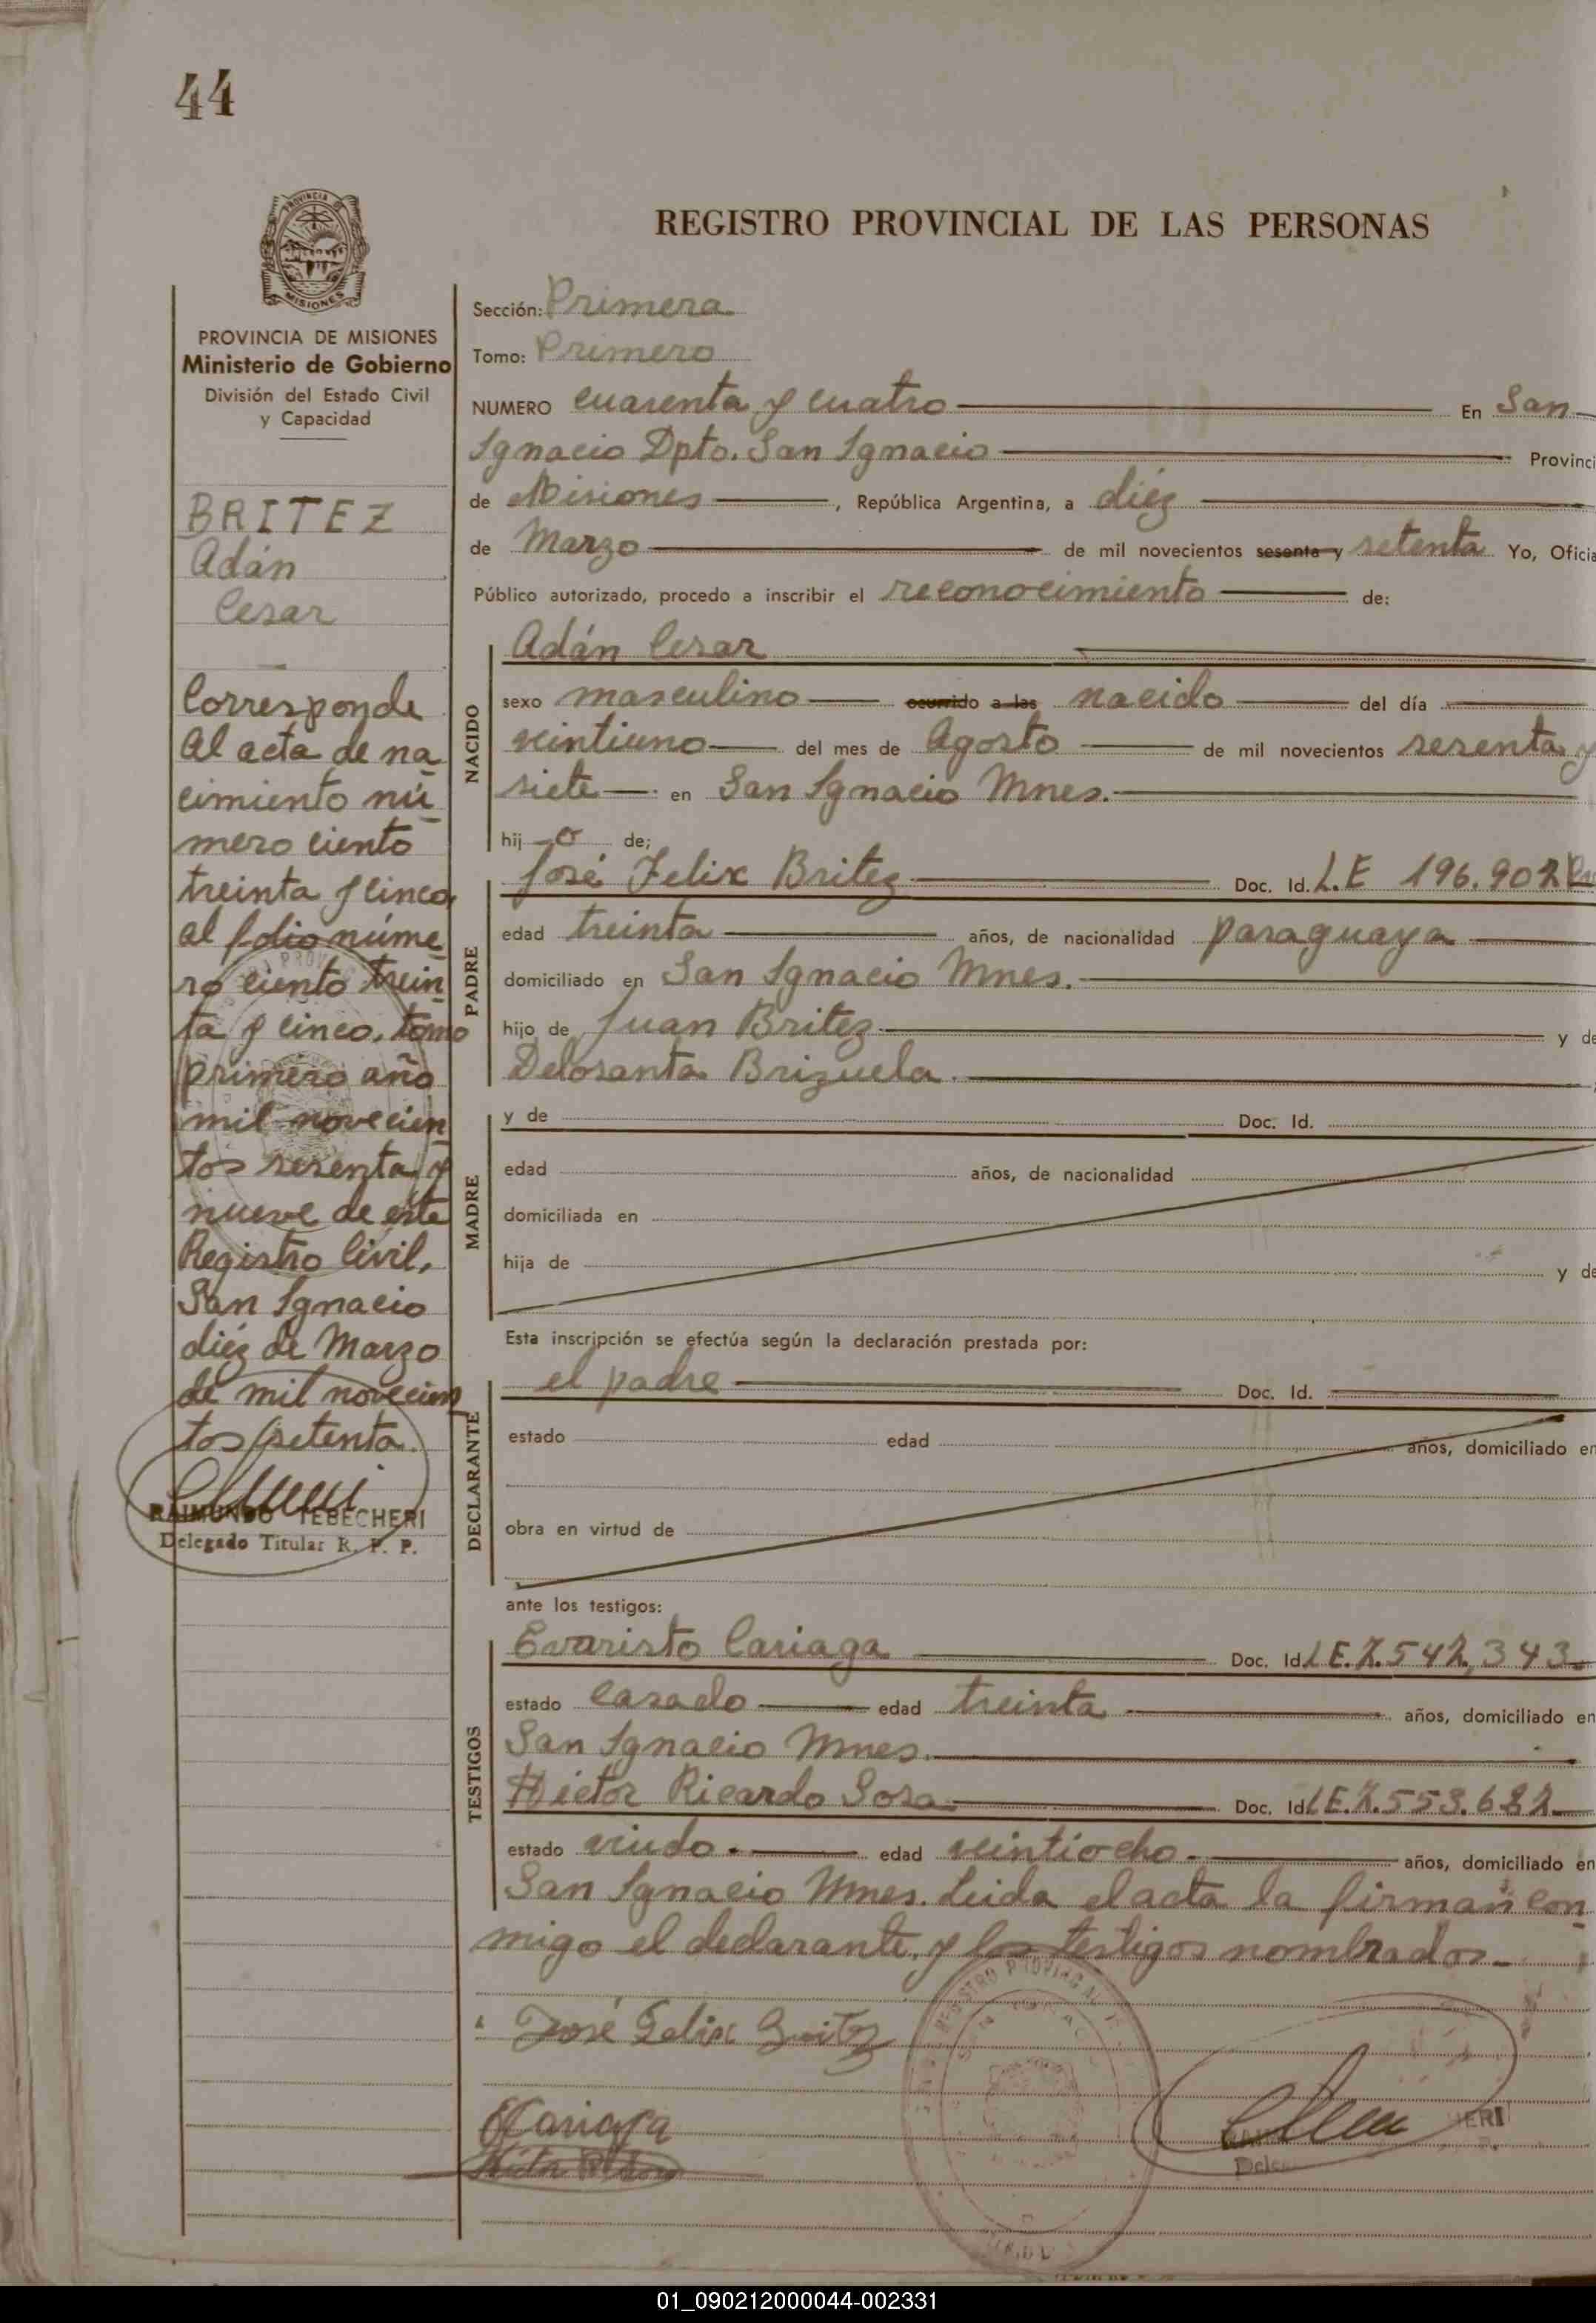 44
PROVINCIA DE
MISIONES
REGISTRO PROVINCIAL DE LAS PERSONAS
PROVINCIA DE MISIONES
Ministerio de Gobierno
División del Estado Civil
y Capacidad
BRITEZ
Adán
Cesar
Corresponde
al acta de na
cimiento nú
mero ciento
treinta y cinco,
al folio núme
ro ciento trein
ta y cinco, tomo
primero año
mil novecien
tos sesenta y
nueve de este
Registro Civil,
San Ignacio
diéz de Marzo
de mil novecien
tos setenta.
RAIMUNDO TEBECHERI
Delegado Titular R. P. P.
Sección: Primera
Tomo: Primero
NUMERO cuarenta y cuatro En San
Ignacio Dpto. San Ignacio Provinci
de Misiones, República Argentina, a diéz
de Marzo de mil novecientos sesenta y setenta Yo, Oficia
Público autorizado, procedo a inscribir el reconocimiento de:
NACIDO
Adán Cesar
sexo masculino ocurrido a las nacido del día
veintiuno del mes de Agosto de mil novecientos sesenta y
siete en San Ignacio Mnes.
hij o de;
PADRE
José Felix Britez Doc. Id. L.E 196.902
edad treinta años, de nacionalidad paraguaya
domiciliado en San Ignacio Mnes.
hijo de Juan Britez y de
Delosanta Brizuela.
MADRE
y de Doc. Id.
edad años, de nacionalidad
domiciliada en
hija de y de
Esta inscripción se efectúa según la declaración prestada por:
DECLARANTE
el padre Doc. Id.
estado edad años, domiciliado en
obra en virtud de
ante los testigos:
TESTIGOS
Evaristo Cariaga Doc. Id. L.E.7.542,343.
estado casado edad treinta años, domiciliado en
San Ignacio Mnes.
Héctor Ricardo Sosa Doc. Id. L.E.7.553.682
estado viudo. edad veintiocho. años, domiciliado en
San Ignacio Mnes. Leida el acta la firman con
migo el declarante, y los testigos nombrados.
José Felix Britez
ECariaga
HERI
Dele
01_090212000044-002331